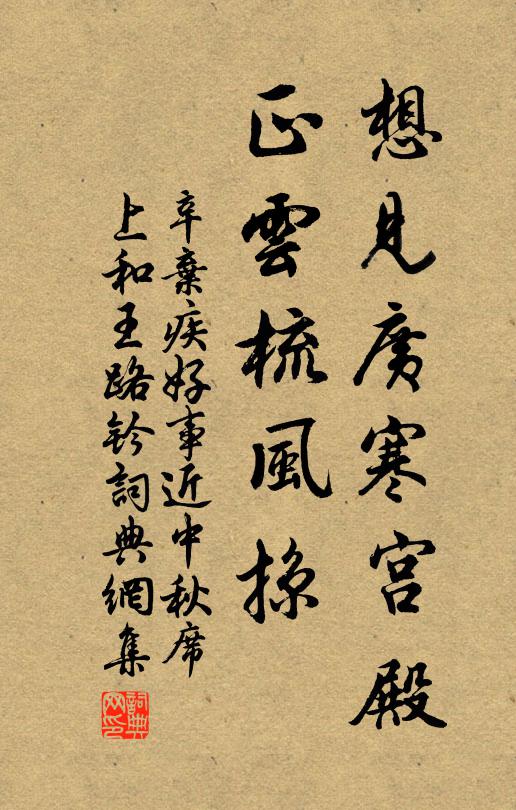 想見廣寒宮殿
正雲梳風掠
辛棄疾好事近中秋席
上和王路鈐詞典網集
詞典网印